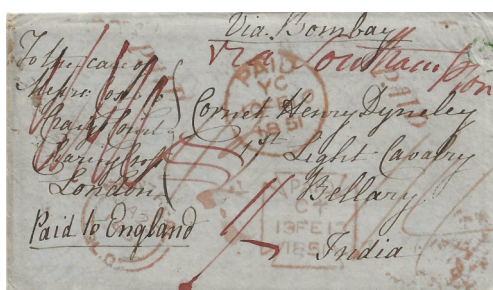 Via. Bombay
via Southampton
To the care of
Craigs Court
Charing Cross
London
Paid to England
Cornet Henry Dyneley
1st Light Cavalry
Bellary
India
PAID
YC
1851
PAID
PAID
CT
13 FE 13
1851